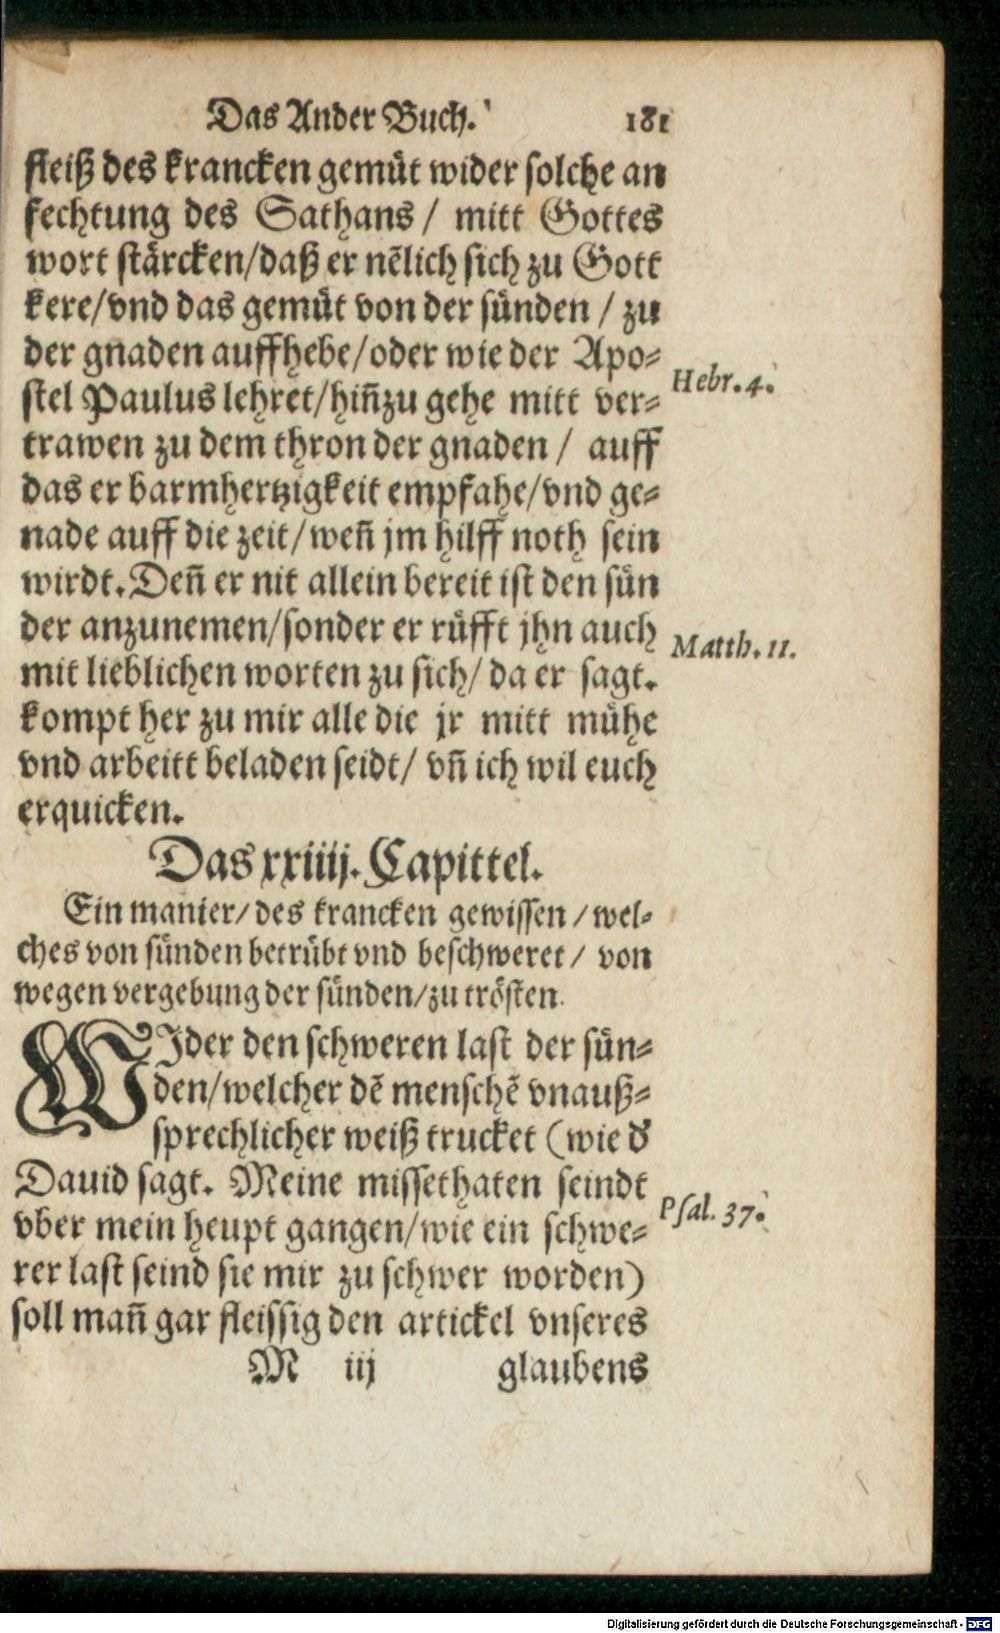 Das Ander Buch. 181
fleiß des krancken gemüt wider solche an
fechtung des Sathans / mitt Gottes
wort stärcken/daß er nẽlich sich zu Gott
kere/vnd das gemüt von der sünden / zu
der gnaden auffhebe/oder wie der Apo-
stel Paulus lehret/hiñzu gehe mitt ver-
Hebr. 4.
trawen zu dem thron der gnaden / auff
das er barmhertzigkeit empfahe/vnd ge-
nade auff die zeit/weñ jm hilff noth sein
wirdt. Deñ er nit allein bereit ist den sün
der anzunemen/sonder er rüfft jhn auch
Matth. 11.
mit lieblichen worten zu sich/ da er sagt.
kompt her zu mir alle die jr mitt mühe
vnd arbeitt beladen seidt/ vñ ich wil euch
erquicken.
Das xxiiij. Capittel.
Ein manier/ des krancken gewissen / wel-
ches von sünden betrübt vnd beschweret / von
wegen vergebung der sünden/zu trösten.
WIder den schweren last der sün-
den/welcher dẽ menschẽ vnauß-
sprechlicher weiß trucket (wie d'
Dauid sagt. Meine missethaten seindt
vber mein heupt gangen/wie ein schwe-
Psal. 37.
rer last seind sie mir zu schwer worden)
soll mañ gar fleissig den artickel vnseres
M iij glaubens
Digitalisierung gefördert durch die Deutsche Forschungsgemeinschaft - DFG